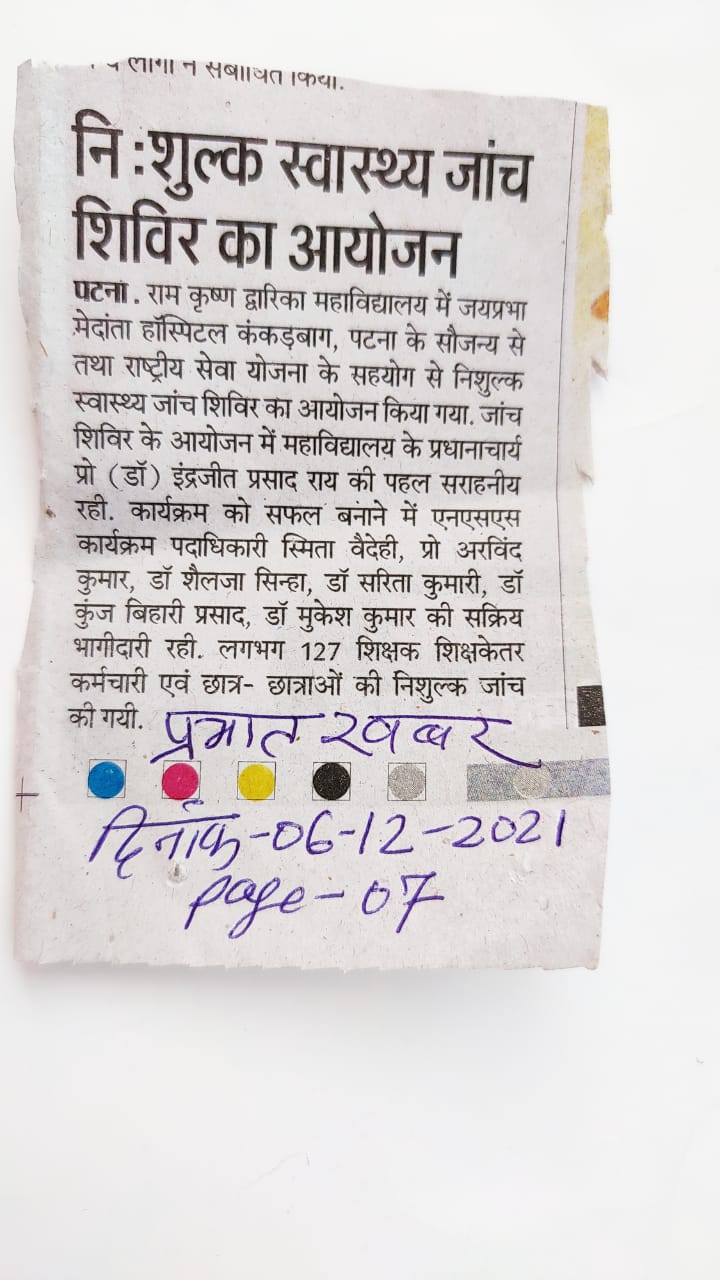 लोगों ने संबोधित किया.
नि:शुल्क स्वास्थ्य जांच
शिविर का आयोजन
पटना. राम कृष्ण द्वारिका महाविद्यालय में जयप्रभा
मेदांता हॉस्पिटल कंकड़बाग, पटना के सौजन्य से
तथा राष्ट्रीय सेवा योजना के सहयोग से निशुल्क
स्वास्थ्य जांच शिविर का आयोजन किया गया. जांच
शिविर के आयोजन में महाविद्यालय के प्रधानाचार्य
प्रो (डॉ) इंद्रजीत प्रसाद राय की पहल सराहनीय
रही. कार्यक्रम को सफल बनाने में एनएसएस
कार्यक्रम पदाधिकारी स्मिता वैदेही, प्रो अरविंद
कुमार, डॉ शैलजा सिन्हा, डॉ सरिता कुमारी, डॉ
कुंज बिहारी प्रसाद, डॉ मुकेश कुमार की सक्रिय
भागीदारी रही. लगभग 127 शिक्षक शिक्षकेतर
कर्मचारी एवं छात्र- छात्राओं की निशुल्क जांच
की गयी.
प्रभात खबर
दिनांक-06-12-2021
page-07